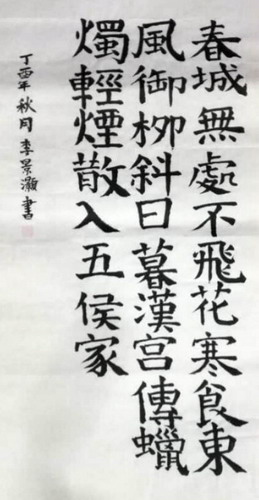 春城無處不飛花寒食東
風御栁斜日暮漢宫傳蠟
燭輕煙散入五侯家
丁酉年秋月李景灝書